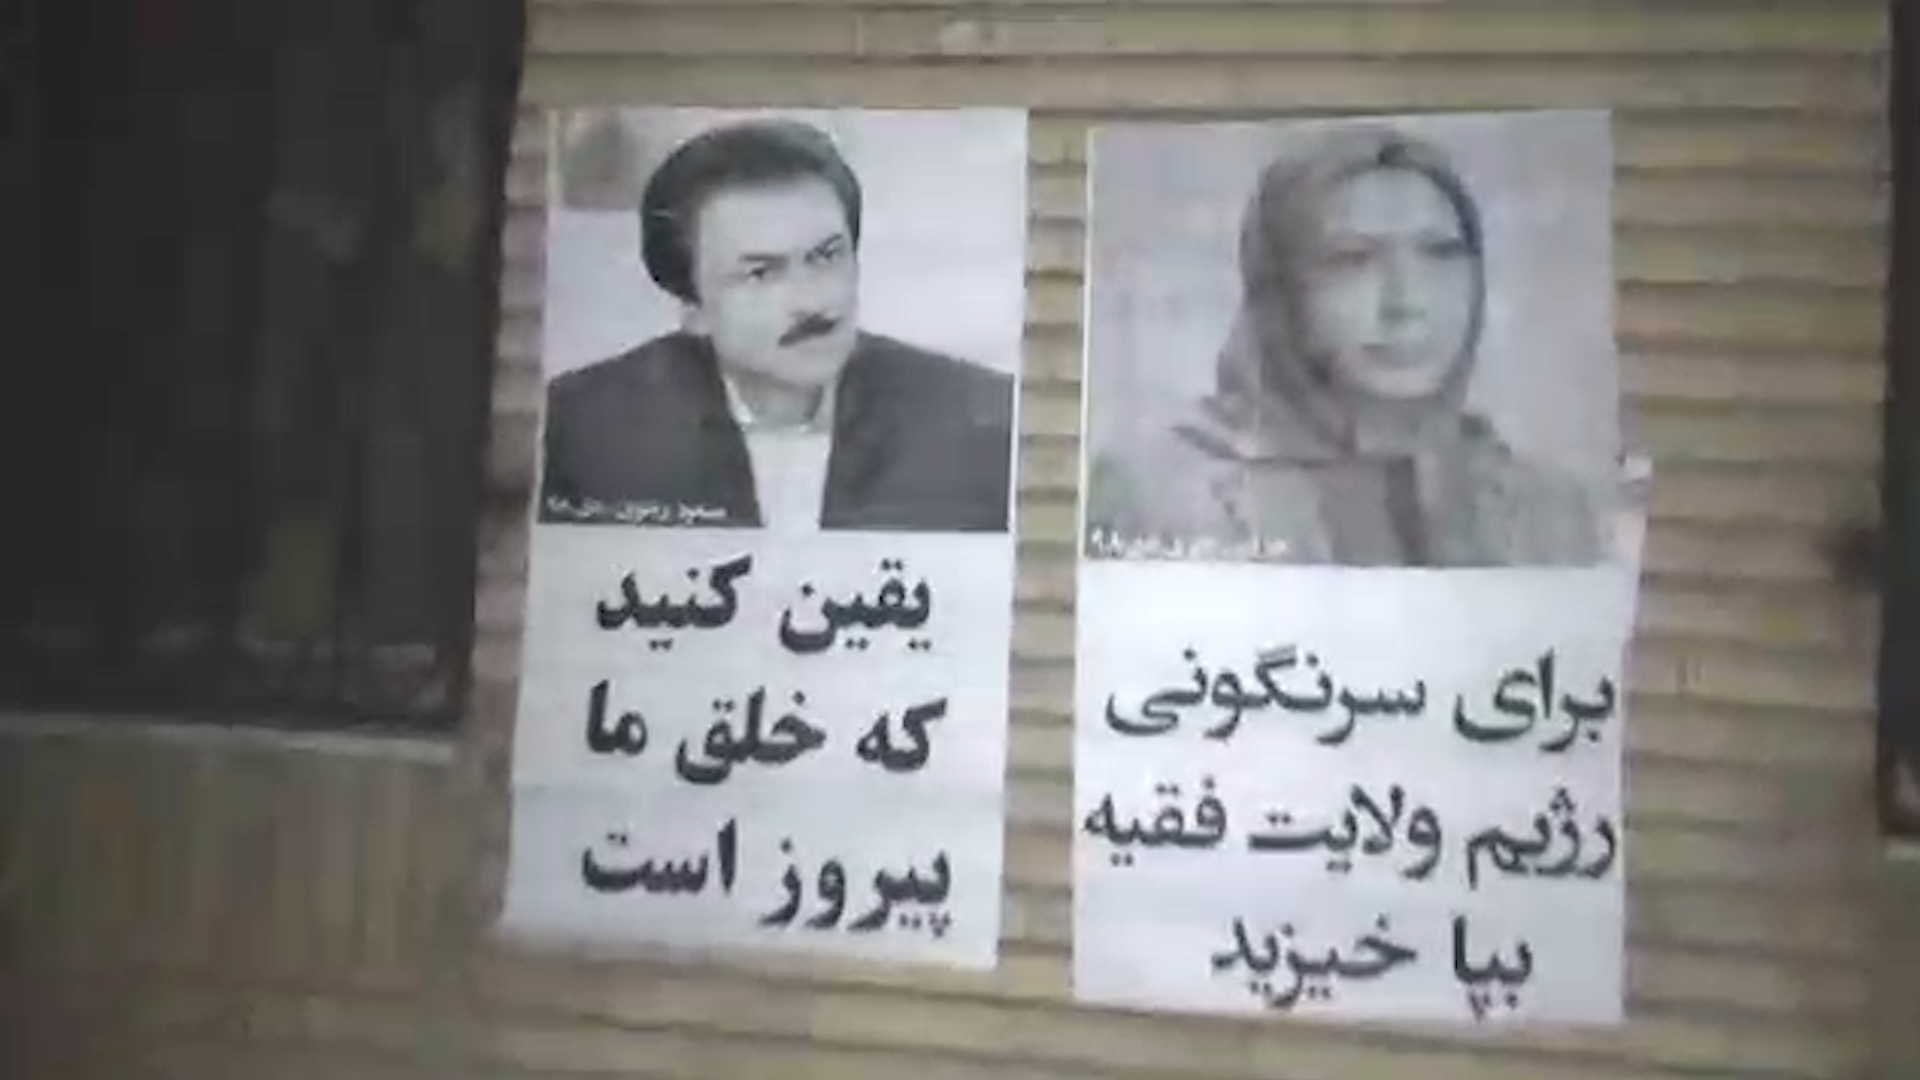 مسعود رجوی
یقین کنید
که خلق ما
پیروز است
برای سرنگونی
رژیم ولایت فقیه
بپا خیزید